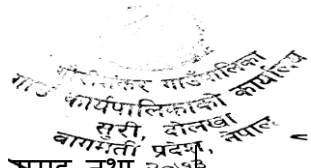 गौरीशंकर गाउँपालिका
गाउँ कार्यपालिकाको कार्यालय
सुरी, दोलखा
बागमती प्रदेश, नेपाल
तथा २०७३